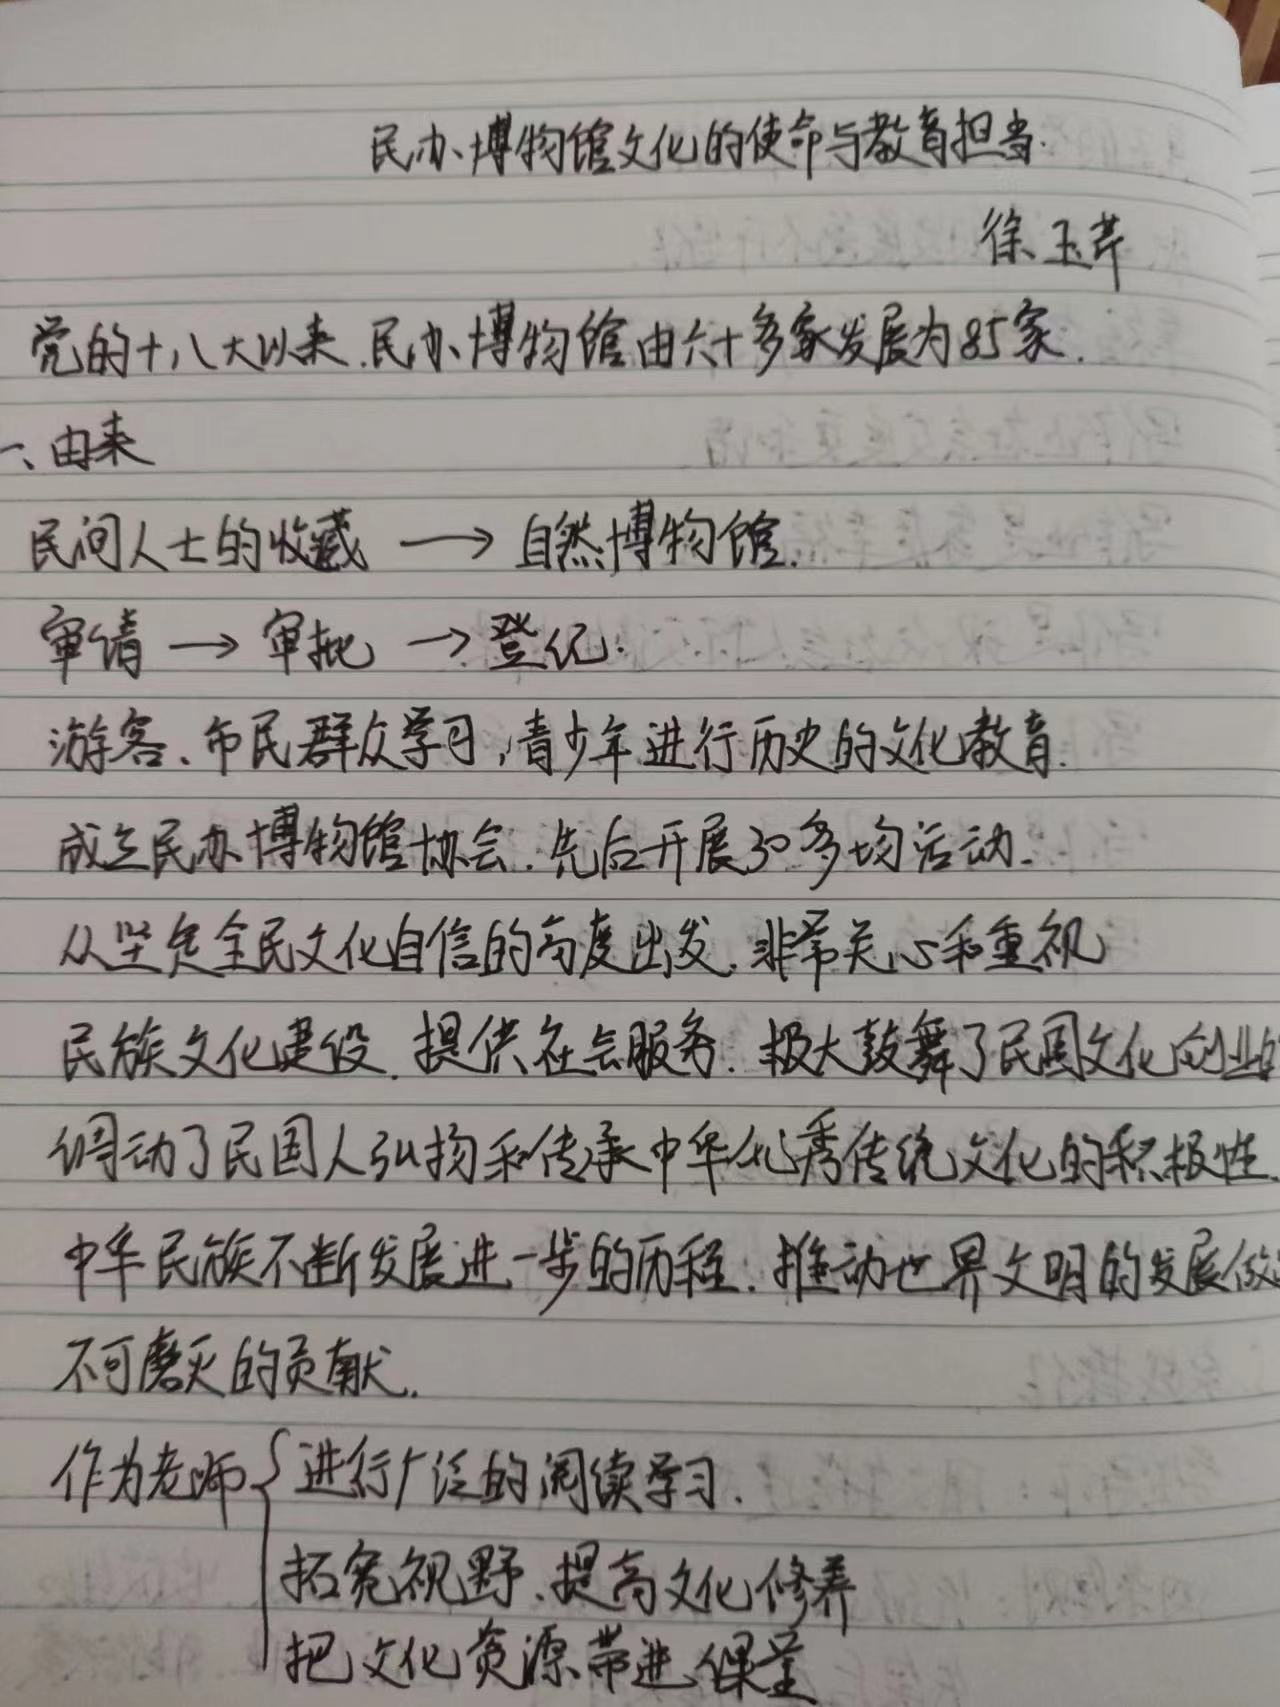 民办博物馆文化的使命与教育担当.
徐玉芹
党的十八大以来.民办博物馆由六十多家发展为85家.
一、由来
民间人士的收藏 → 自然博物馆.
审请 → 审批 → 登记.
游客、市民群众学习,青少年进行历史的文化教育.
成立民办博物馆协会.先后开展30多均活动.
从坚定全民文化自信的高度出发.非常关心和重视
民族文化建设.提供社会服务.极大鼓舞了民国文化创业的
调动了民国人弘扬和传承中华优秀传统文化的积极性.
中华民族不断发展进一步的历程.推动世界文明的发展做
不可磨灭的贡献.
作为老师{进行广泛的阅读学习.
拓宽视野.提高文化修养
把文化资源带进课堂